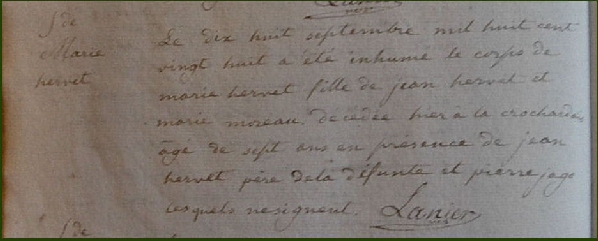 Lanier
S de
Marie
hervet
Le dix huit septembre mil huit cent
vingt huit a été inhumé le corps de
marie hervet fille de jean hervet et
marie moreau decedée hier à la
âge de sept ans en présence de jean
hervet père dela défunte et pierre jago
lesquels nesignent. Lanier
S de